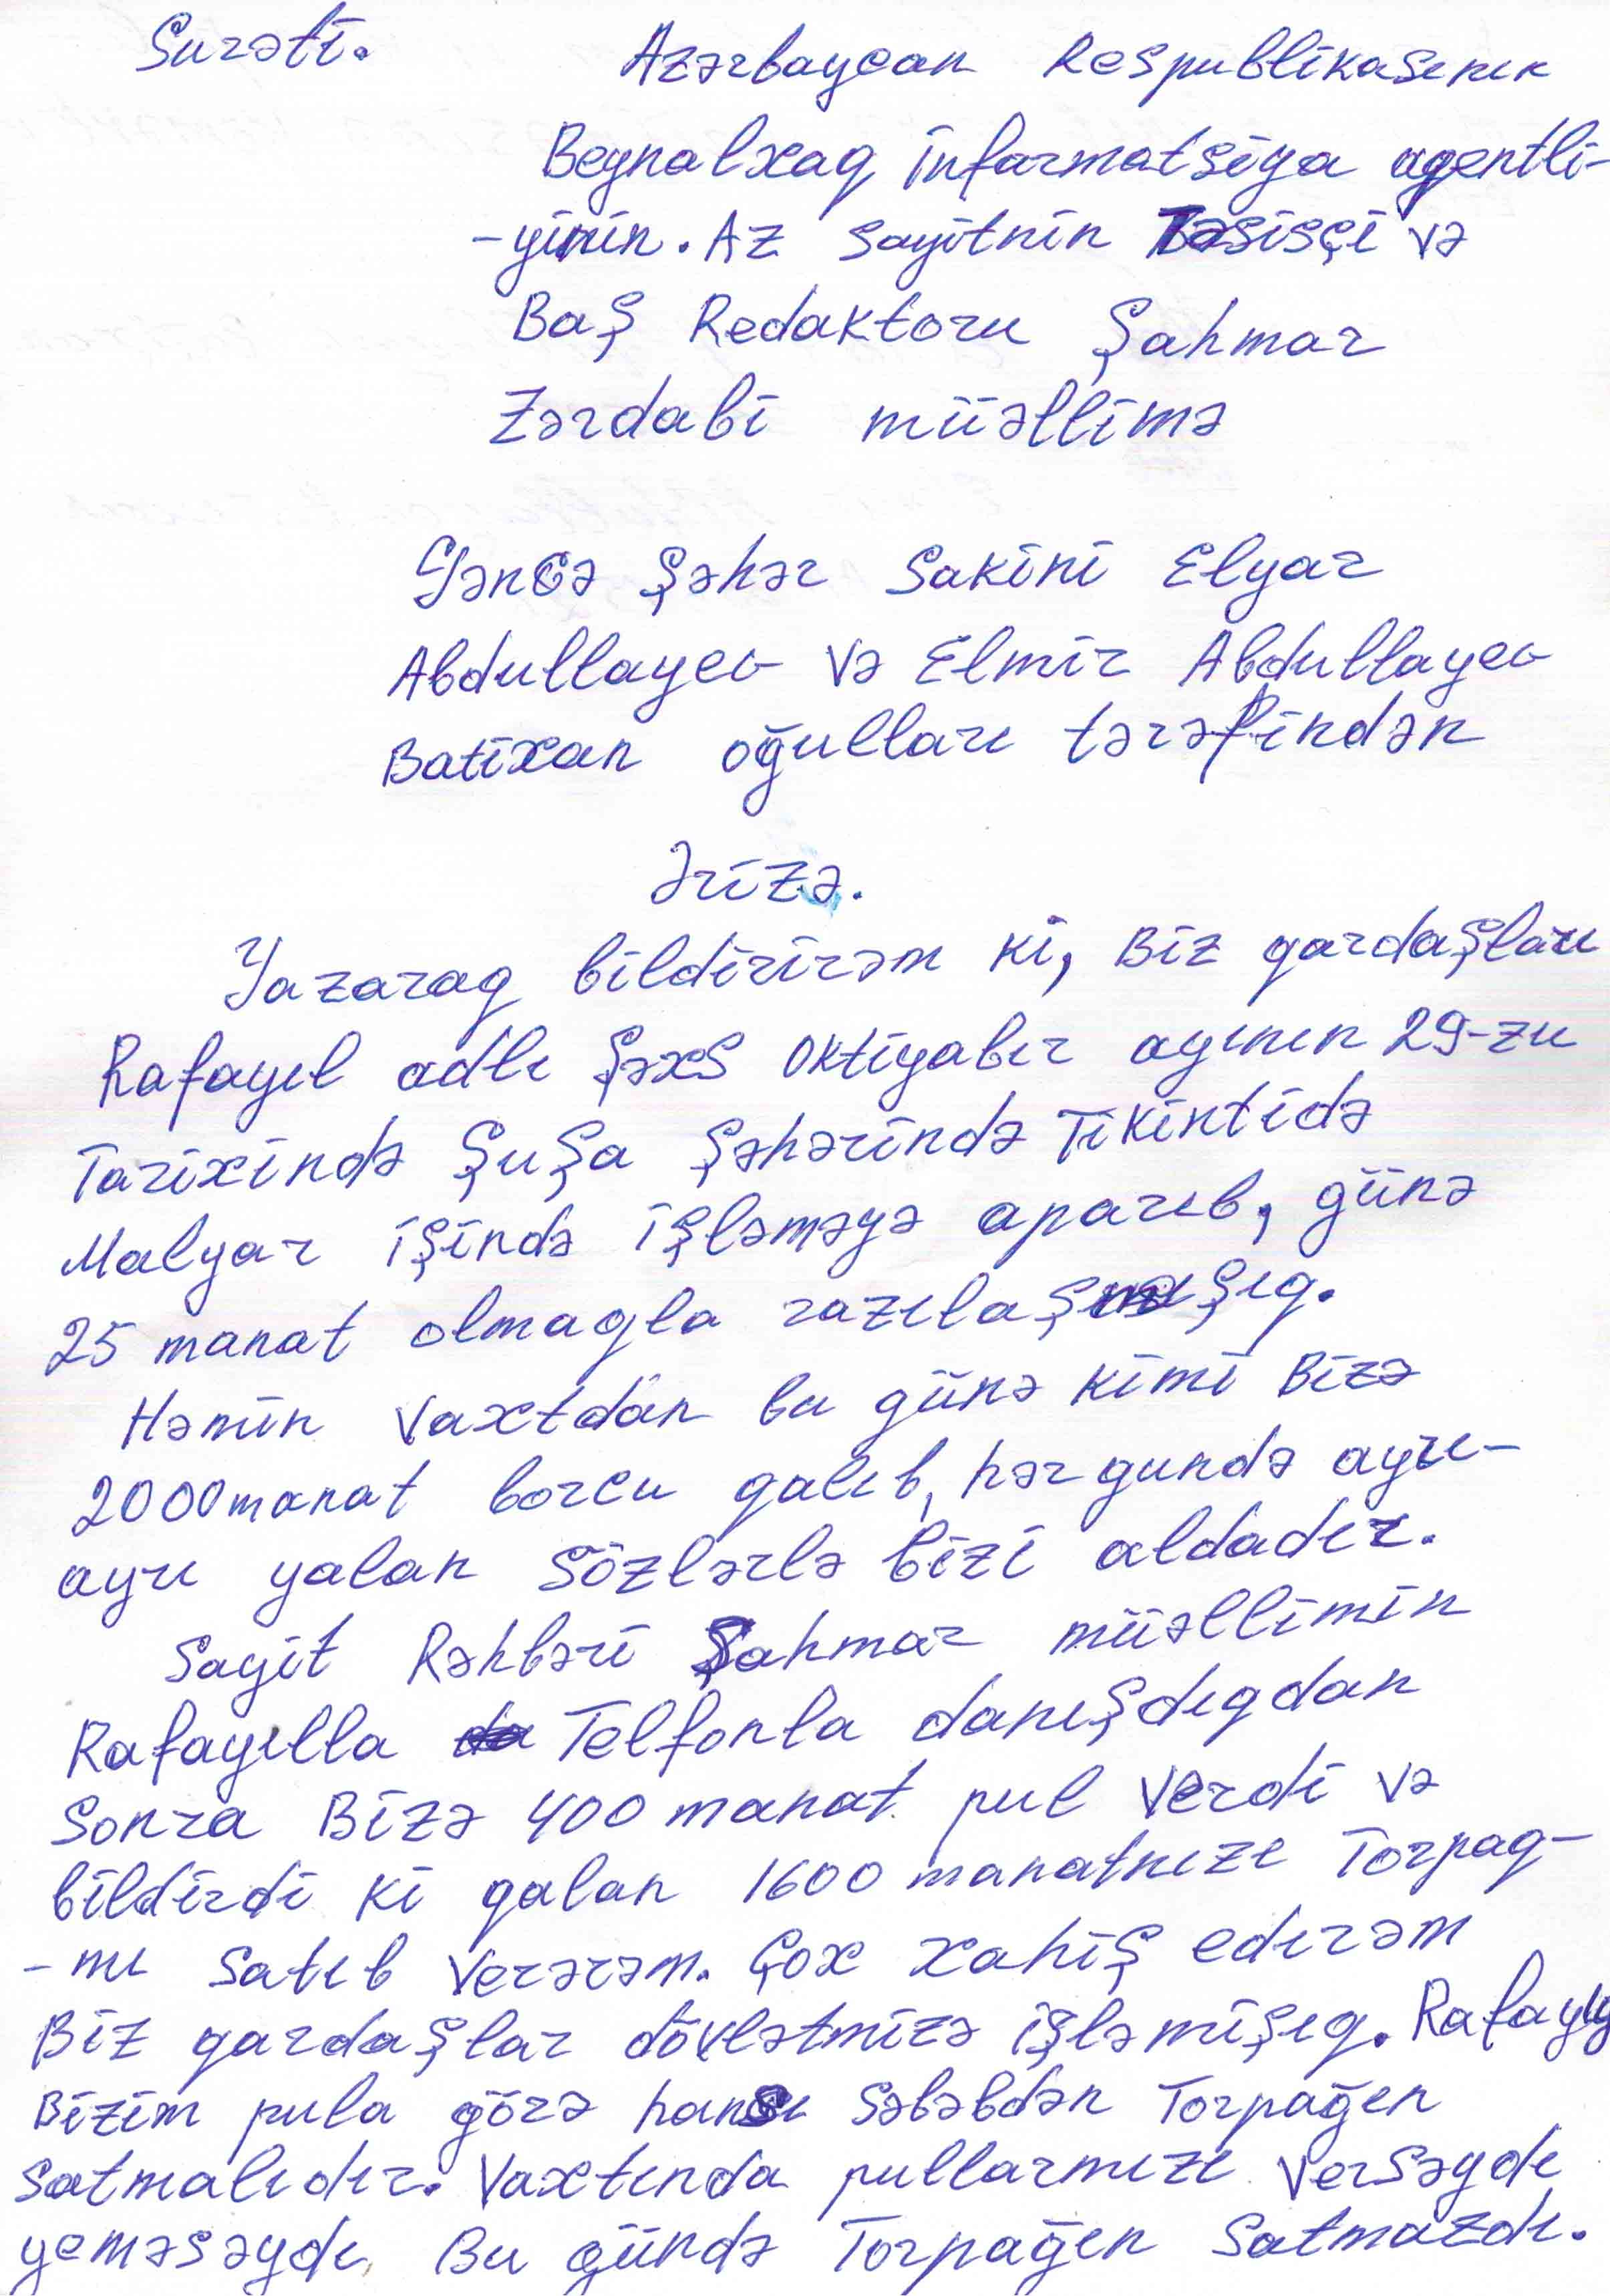 Surəti.
Azərbaycan Respublikasının
Beynalxaq informatsiya agentli-
-yinin. Az sayitnin Təsisçi və
Baş Redaktoru Şahmar
Zərdabi müəllimə
Gəncə şəhər sakini Elyar
Abdullayev və Elmir Abdullayev
Batixan oğulları tərəfindən
Ərizə.
Yazaraq bildirirəm ki, Biz qardaşları
Rafayıl adlı şəxs oktiyabır ayının 29-zu
Tarixində Şuşa şəhərində Tikintidə
Malyar işində işləməyə aparıb, günə
25 manat olmaqla razılaşmışıq.
Həmin vaxtdan bu günə kimi Bizə
2000 manat borcu qalıb, hər gundə ayrı-
ayrı yalan sözlərlə bizi aldadır.
Sayit Rəhbəri Şahmar müəllimin
Rafayılla Telfonla danışdıqdan
Sonra Bizə 400 manat pul verdi və
bildirdi ki qalan 1600 manatnızı Torpaq-
-mı satıb verərəm. Çox xahiş edırəm
Biz qardaşlar dövlətmizə işləmişıq. Rafayıl
Bizim pula görə hansı səbəbdən Torpağın
satmalıdır. Vaxtında pullarmızı versəydı
yeməsəydı, Bu gündə Torpağın satmazdı.